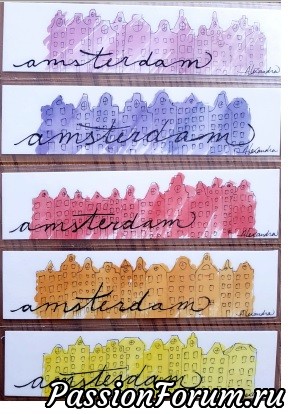 amsterdam
Alexandra
amsterdam
Alexandra
amsterdam
Alexandra
amsterdam
Alexandra
amsterdam
PassionForum.ru